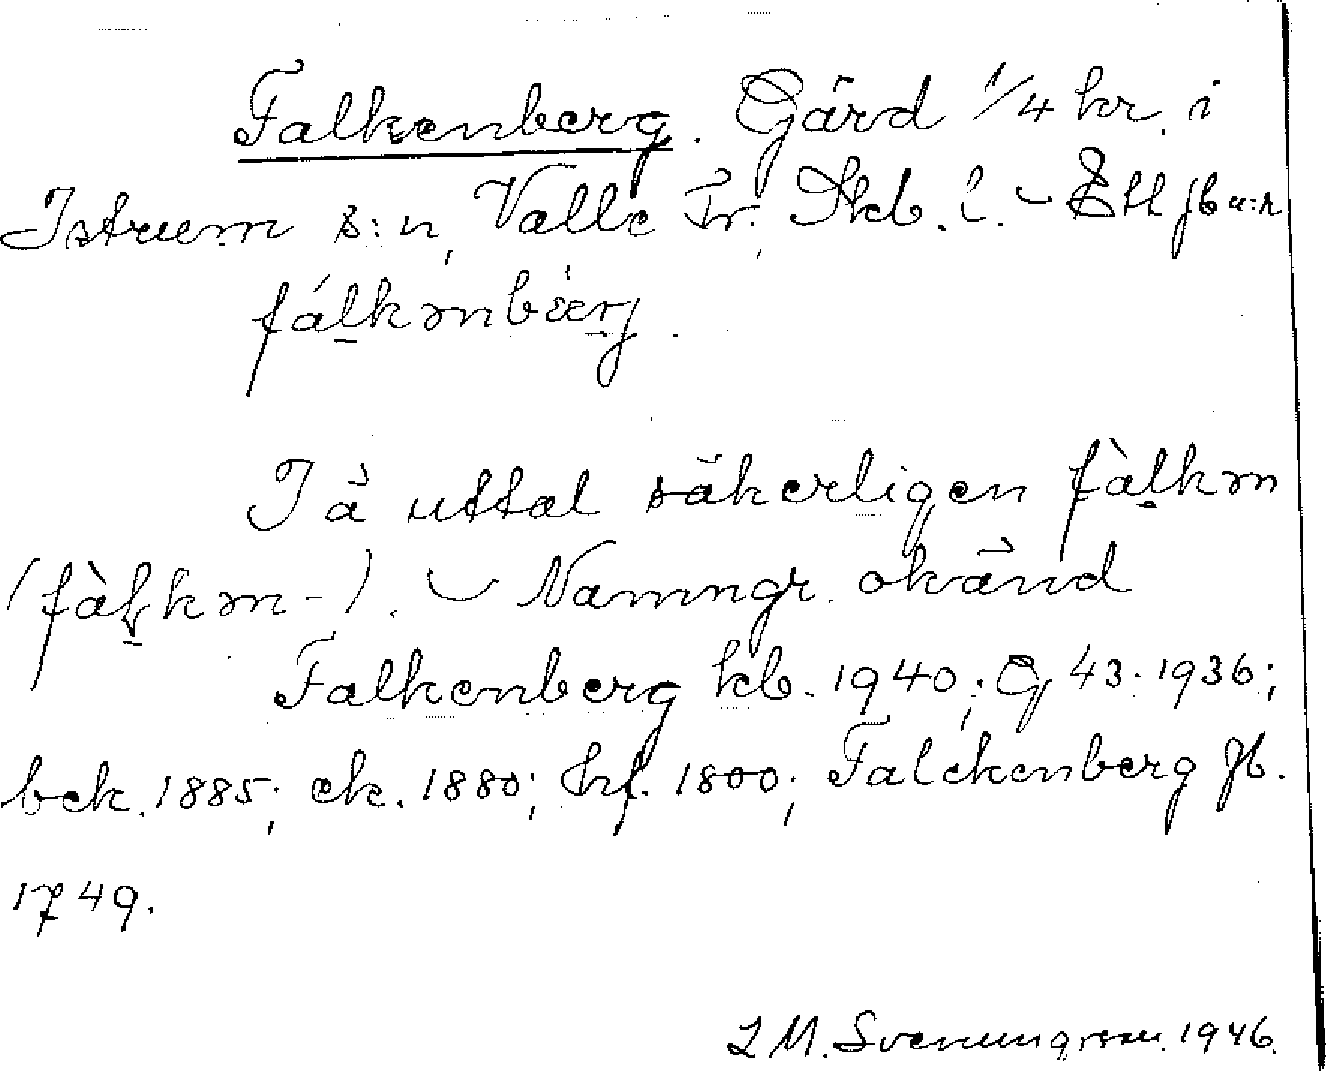 Falkenberg. Gård 1/4 kr. i
Istrum s:n, Valle hr., Skb. l. – Ett jbu:r
fálkənbærj.
Tä uttal säkerligen fàlkən
(fàlkən-). – Namngr. okänd
Falkenberg kb. 1940; G 43. 1936;
bek. 1885; ek. 1880; hf. 1800; Falckenberg Jb.
1749.
L M. Svenungsson. 1946.